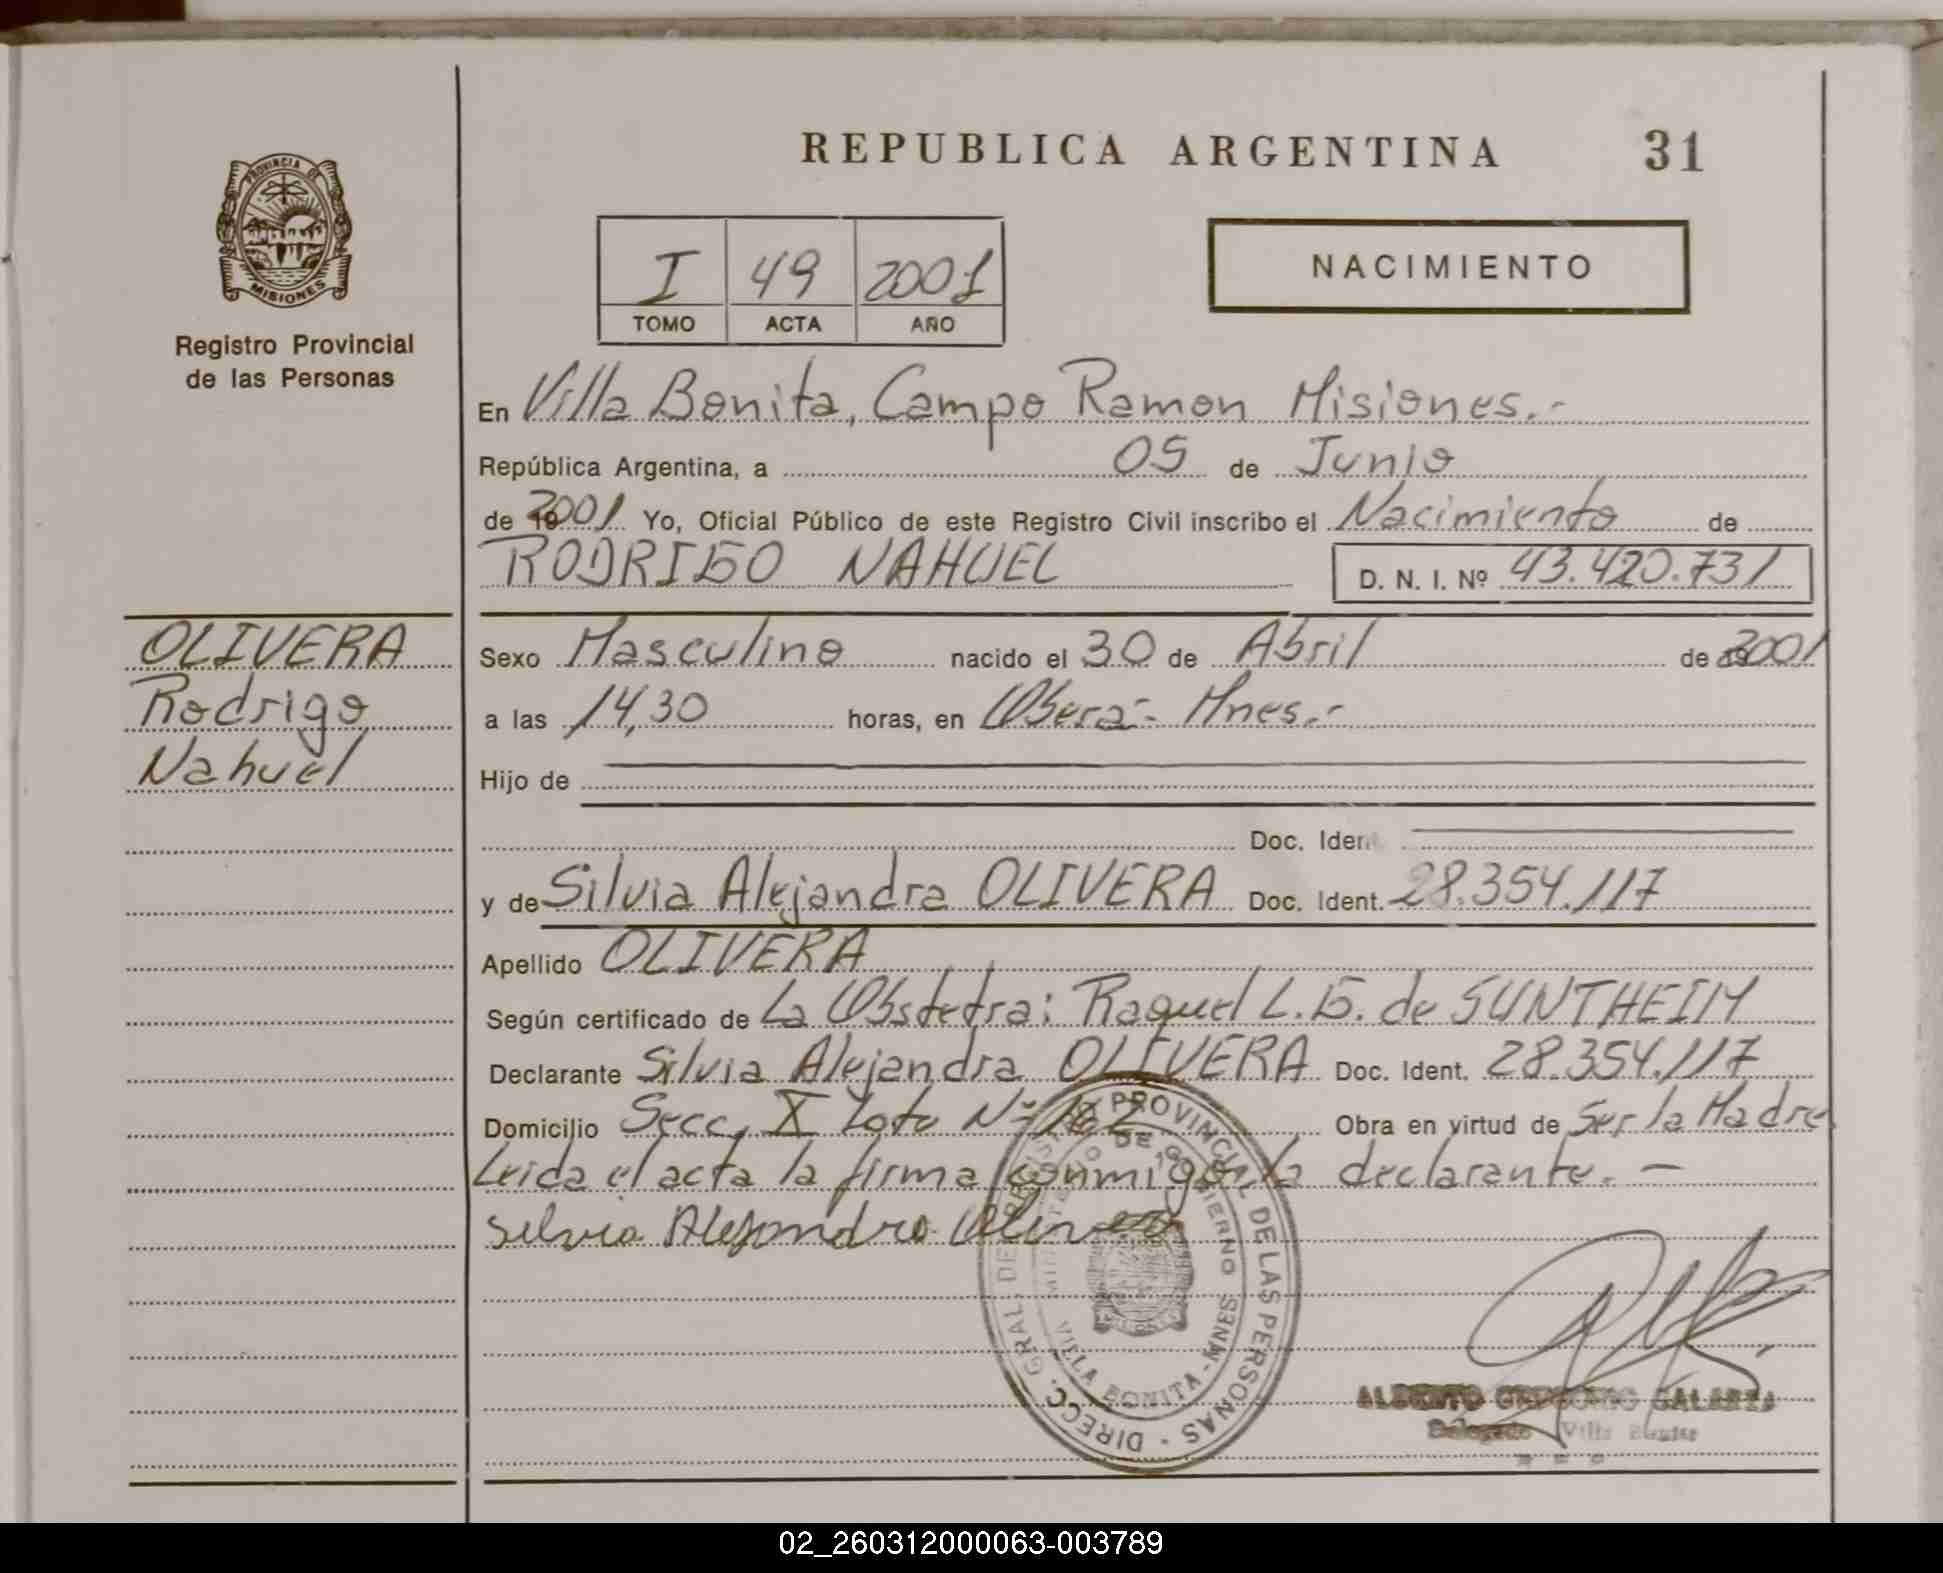 REPUBLICA ARGENTINA 31
PROVINCIA DE
MISIONES
Registro Provincial
de las Personas
I 49 2001
TOMO ACTA AÑO
NACIMIENTO
En Villa Bonita, Campo Ramon Misiones.-
República Argentina, a 05 de Junio
de 2001 Yo, Oficial Público de este Registro Civil inscribo el Nacimiento de
RODRIGO NAHUEL D. N. I. Nº 43.420.731
OLIVERA
Rodrigo
Nahuel
Sexo Masculino nacido el 30 de Abril de 2001
a las 14,30 horas, en Oberá- Mnes.-
Hijo de
Doc. Ident.
y de Silvia Alejandra OLIVERA Doc. Ident. 28.354.117
Apellido OLIVERA
Según certificado de La Obstetra: Raquel L.G. de SUNTHEIM
Declarante Silvia Alejandra OLIVERA Doc. Ident. 28.354.117
Domicilio Secc, X Lote Nº 162 Obra en virtud de Ser la Madre
Leida el acta la firma conmigo la declarante.-
Silvia Alejandra Olivera
DIRECC. GRAL. DE REGISTRO PROVINCIAL DE LAS PERSONAS
MINISTERIO DE GOBIERNO
VILLA BONITA - MNES
ALBERTO GALARZA
Delegado Villa Bonita
02_260312000063-003789